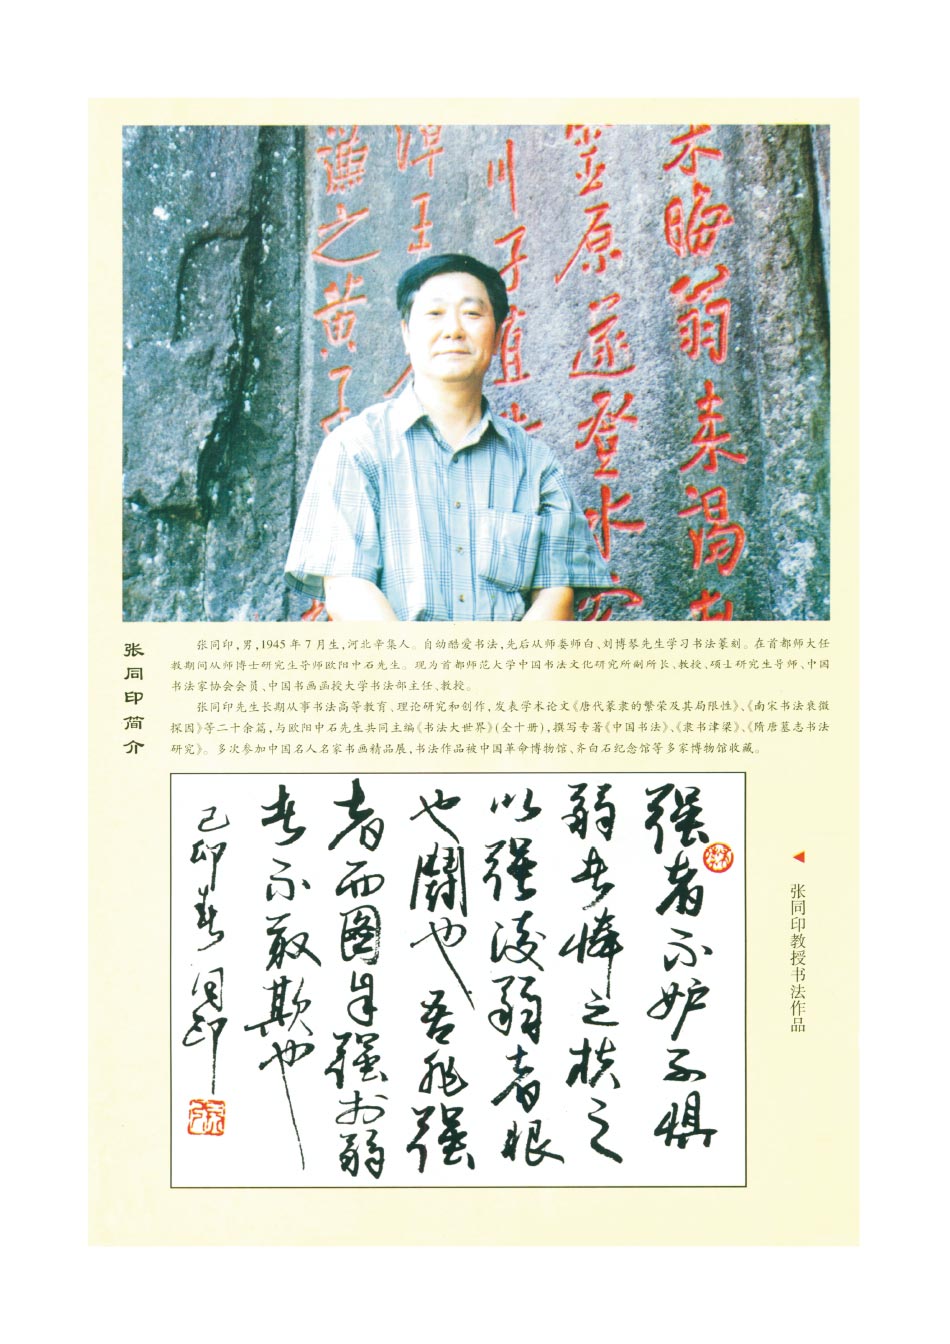 木晦翁来谒
登原遂登水
川子直
潭王
谯之黄子
张同印简介
张同印,男,1945年7月生,河北辛集人。自幼酷爱书法,先后从师娄师白、刘博琴先生学习书法篆刻。在首都师大任
教期间从师博士研究生导师欧阳中石先生。现为首都师范大学中国书法文化研究所副所长、教授、硕士研究生导师、中国
书法家协会会员、中国书画函授大学书法部主任、教授。
张同印先生长期从事书法高等教育、理论研究和创作,发表学术论文《唐代篆隶的繁荣及其局限性》、《南宋书法衰微
探因》等二十余篇,与欧阳中石先生共同主编《书法大世界》(全十册),撰写专著《中国书法》、《隶书津梁》、《隋唐墓志书法
研究》。多次参加中国名人名家书画精品展,书法作品被中国革命博物馆、齐白石纪念馆等多家博物馆收藏。
强者不妒不惧
弱者怜之扶之
以强凌弱者眼
也闘也吾非强
者而图自强于弱
者不敢欺也
己卯春同印
张同印教授书法作品